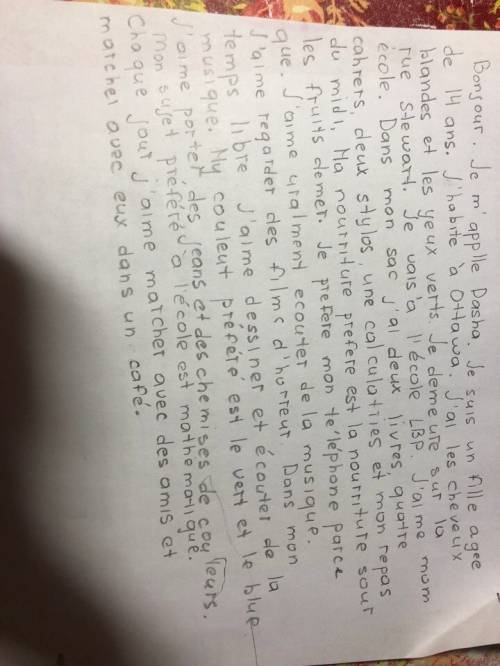 Bonjour. Je m'applle Dasha. Je suis un fille agee
de 14 ans. J'habite à Ottawa. J'ai les cheveux
blandes et les yeux verts. Je demeure sur la
rue Stewart. Je vais à l'école LBP. J'aime mum
école. Dans mon sac j'ai deux livres, quatre
cahrers, deux stylos, une calculatries et mon repas
du midi. Ma nourriture prefere est la nourriture sour
les fruits demer. Je prefere mon téléphone parce
que. J'aime uralment ecouter de la musique.
J'aime regarder des films d'horreur. Dans mon
temps libre j'aime dessiner et écouter de la
musique. My couleut préféré est le vert et le blue.
J'aime porter des jeans et des chemises de couleurs.
Mon sujet préféré à l'école est mathematique.
Chaque jour j'aime marcher avec des amis et
marcher avec eux dans un café.